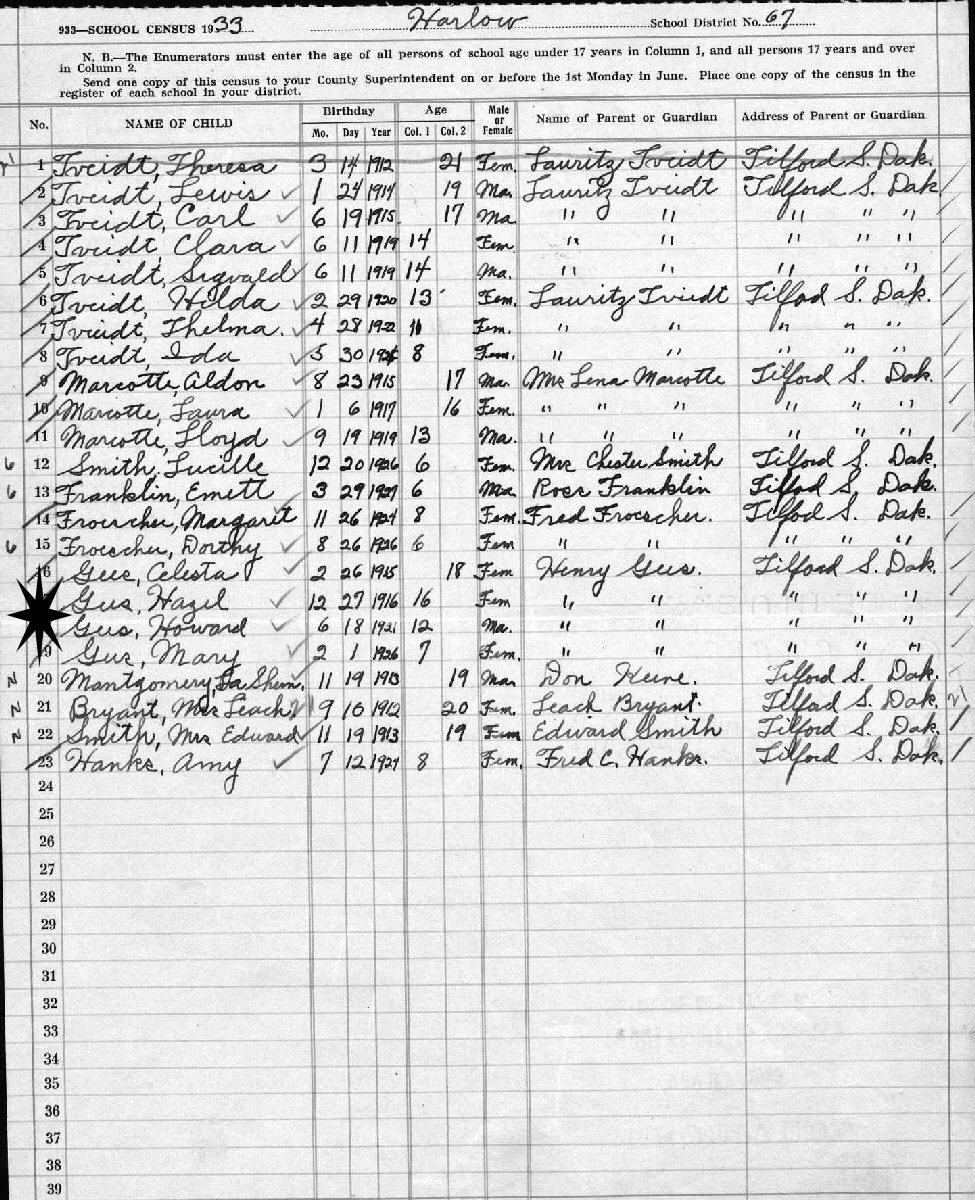 933—SCHOOL CENSUS 1933 Harlow School District No. 67
N. B.—The Enumerators must enter the age of all persons of school age under 17 years in Column 1, and all persons 17 years and over
in Column 2.
Send one copy of this census to your County Superintendent on or before the 1st Monday in June. Place one copy of the census in the
register of each school in your district.
No. NAME OF CHILD Birthday Age Male or Female Name of Parent or Guardian Address of Parent or Guardian
Mo. Day Year Col. 1 Col. 2
1 Tveidt, Theresa 3 14 1912 21 Fem. Lauritz Tveidt Tilford S. Dak.
2 Tveidt, Lewis ✓ 1 24 1914 19 Ma. Lauritz Tveidt Tilford S. Dak
3 Tveidt, Carl ✓ 6 19 1915 17 Ma. " " " " "
4 Tveidt, Clara ✓ 6 11 1919 14 Fem. " " " " "
5 Tveidt, Sigvald ✓ 6 11 1919 14 Ma. " " " " "
6 Tveidt, Hilda ✓ 2 29 1920 13 Fem. Lauritz Tviedt Tilfod S. Dak.
7 Tveidt, Thelma. ✓ 4 28 1922 11 Fem. " " " " "
8 Tveidt, Ida ✓ 5 30 8 Fem. " " " " "
9 Marcotte, Aldon ✓ 8 23 1915 17 Ma. Mrs Lena Marcotte Tilford S. Dak.
10 Marcotte, Laura ✓ 1 6 1917 16 Fem. " " " " " "
11 Marcotte, Lloyd ✓ 9 19 1919 13 Ma. " " " " " "
6 12 Smith, Lucille 12 20 1926 6 Fem. Mrs Chester Smith Tilford S. Dak.
6 13 Franklin, Emett 3 29 1927 6 Ma. Ross Franklin Tilfod S. Dak.
14 Froescher, Margaret 11 26 1924 8 Fem. Fred Froescher. Tilfod S. Dak.
6 15 Froescher, Dorthy ✓ 8 26 1926 6 Fem " " " " "
16 Geis, Celesta ✓ 2 26 1915 18 Fem Henry Geis. Tilford S. Dak.
Geis, Hazel ✓ 12 27 1916 16 Fem " " " " "
Geis, Howard ✓ 6 18 1921 12 Ma. " " " " "
19 Geis, Mary ✓ 2 1 1926 7 Fem. " " " " "
20 Mantgomery, 11 19 1913 19 Ma. Don Tilford S. Dak.
21 Bryant, Mrs Leach 9 10 1912 20 Fem. Leach Bryant. Tilford S. Dak. 21
22 Smith, Mrs Edward ✓ 11 19 1913 19 Fem Edward Smith Tilford S. Dak.
23 Hanks, Amy ✓ 7 12 8 Fem. Fred C. Hanks. Tilford S. Dak.
24
25
26
27
28
29
30
31
32
33
34
35
36
37
38
39